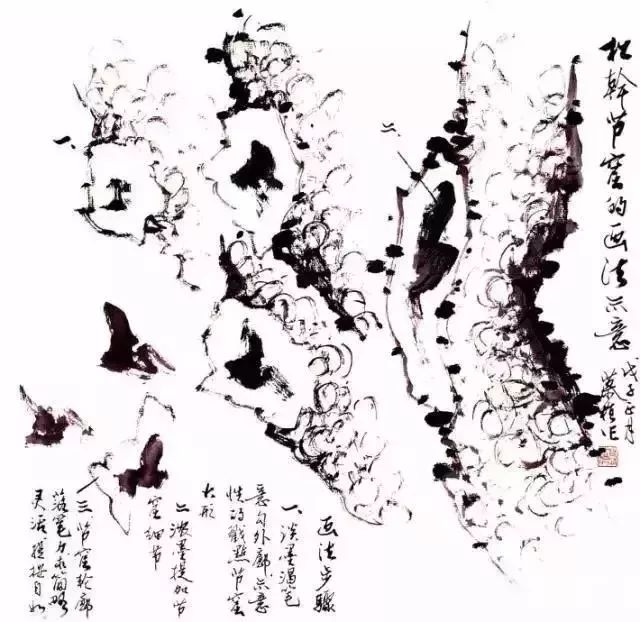 松幹节窐的画法示意
戊子正月
作
一、
二、
画法步驟
一、淡墨渴笔
意勾外廓示意
性的戳點节窐
大形
二、浓墨提加节
窐细节
三、节窐轮廓
落笔力求简略
灵活提按自如